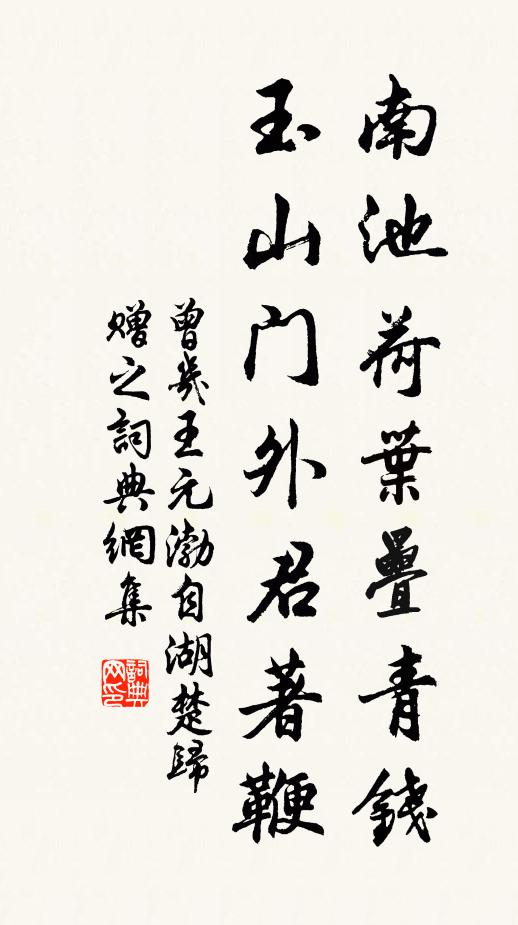 南池荷葉疊青錢
玉山門外君著鞭
曾幾王元渤自湖楚歸
贈之詞典網集
詞典
网印